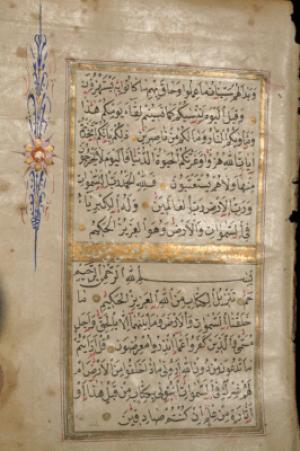 وبدا لهم سيئات ما عملوا وحاق بهم ما كانوا به يستهزؤن
وقيل اليوم ننسيكم كما نسيتم لقاء يومكم هذا
ومأويكم النار وما لكم من ناصرين ذلكم بانكم اتخذتم
آيات الله هزوا وغرتكم الحيوة الدنيا فاليوم لا يخرجون
منها ولا هم يستعتبون فلله الحمد رب السموات
ورب الارض رب العالمين وله الكبرياء
في السموات والارض وهو العزيز الحكيم
بسم الله الرحمن الرحيم
حم تنزيل الكتاب من الله العزيز الحكيم ما
خلقنا السموات والارض وما بينهما الا بالحق واجل
مسمى والذين كفروا عما انذروا معرضون قل ارايتم
ما تدعون من دون الله اروني ماذا خلقوا من الارض ام
لهم شرك في السموات ايتوني بكتاب من قبل هذا او
اثارة من علم ان كنتم صادقين